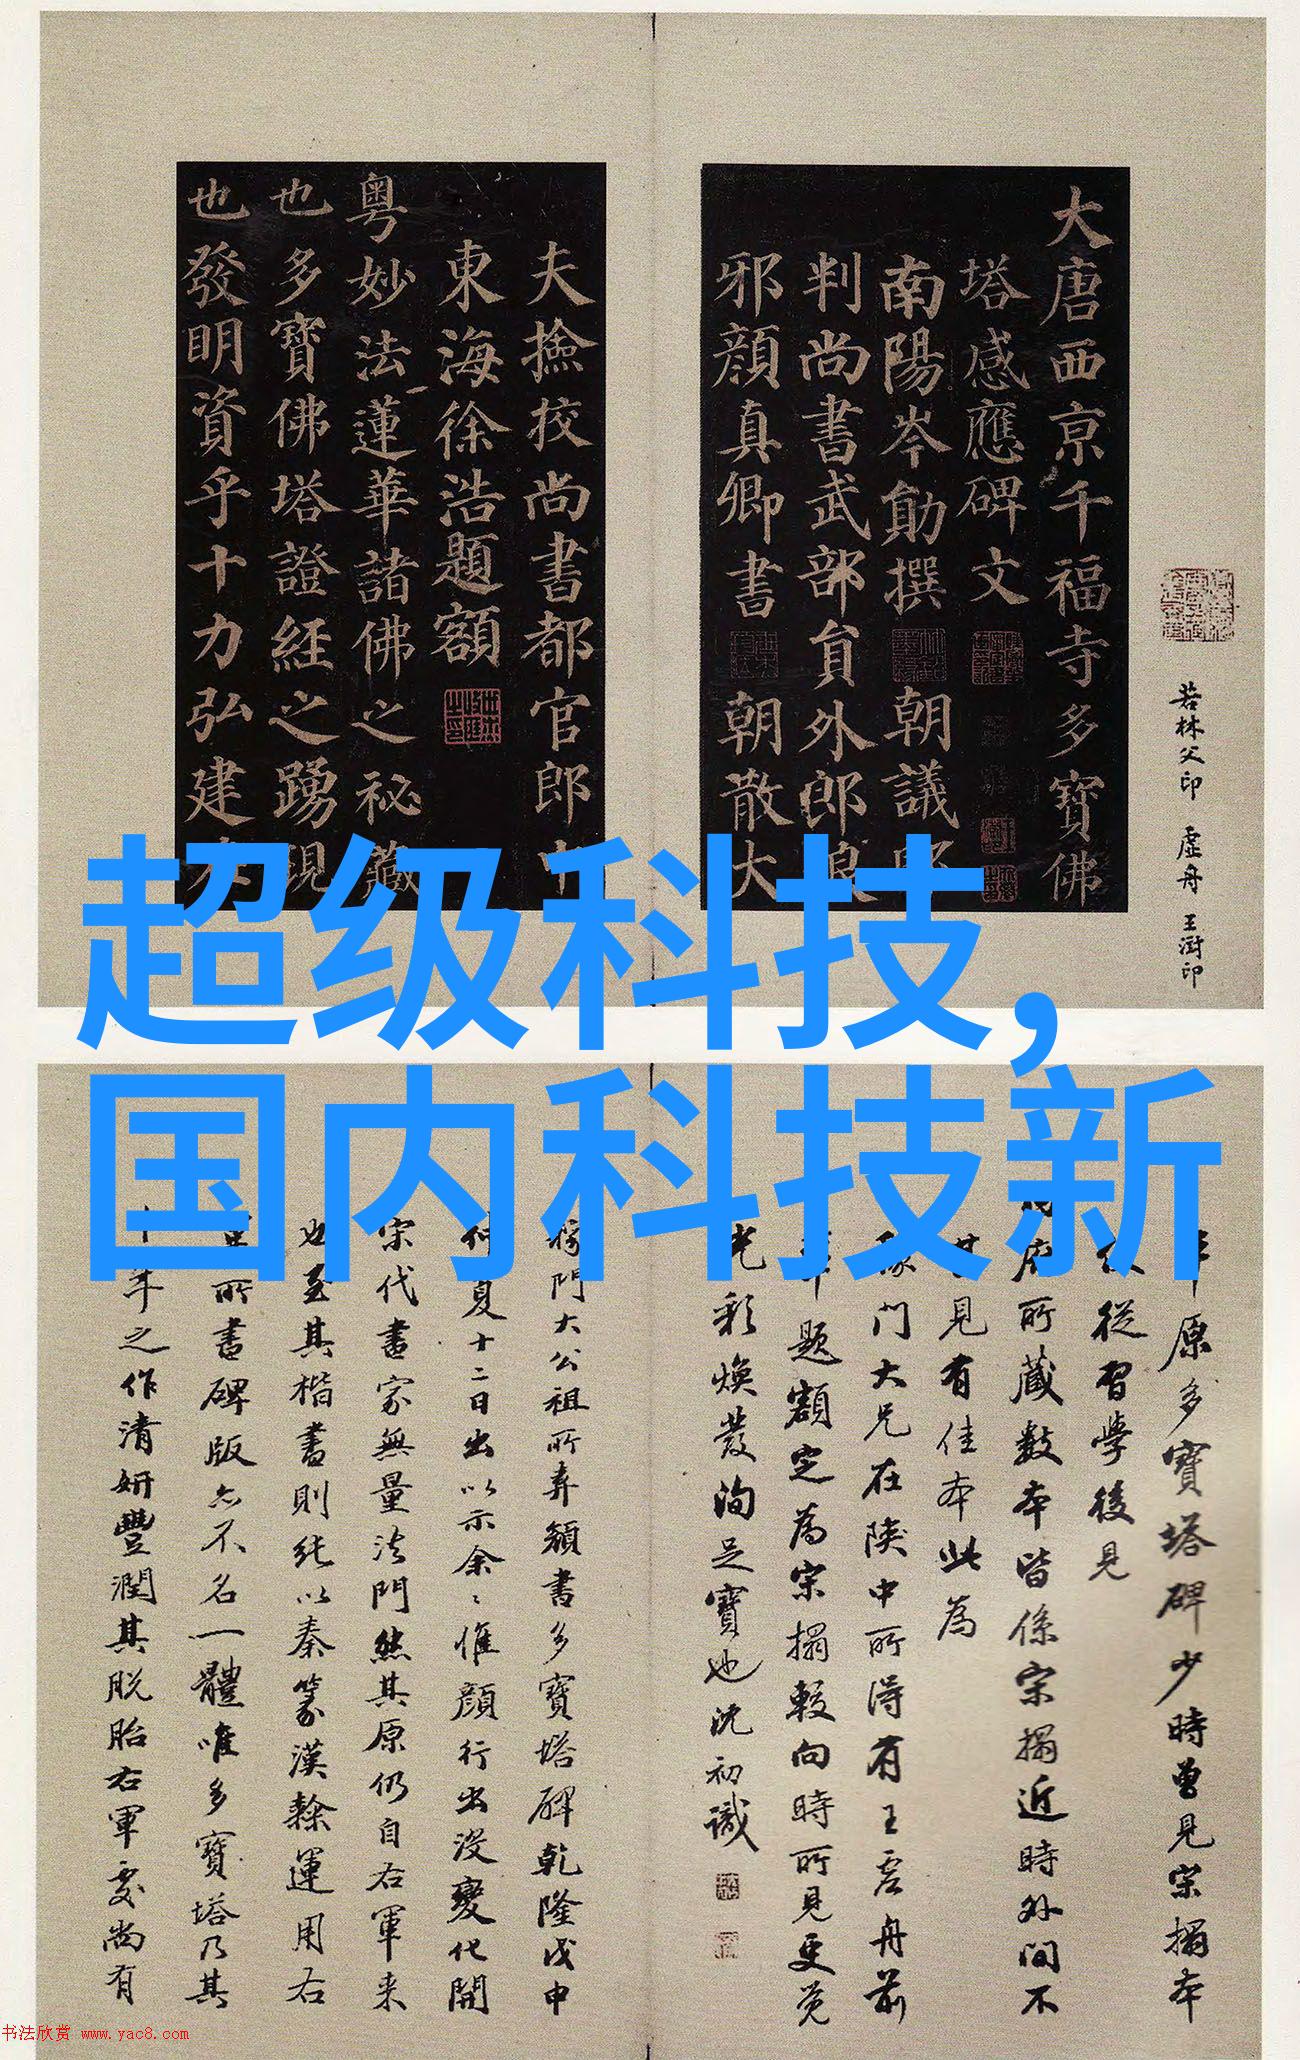 大唐西京千福寺多寶佛
塔感應碑文
南陽岑勛撰 朝議郎
判尚書武部員外郎琅
邪顔真卿書 朝散大
夫撿挍尚書都官郎中
東海徐浩題額
粤妙法蓮華諸佛之祕藏
也多寶佛塔證經之踴現
也發明資乎十力弘建
若林父印 虛舟 王澍印
超级科技，
国内科技新
原多寶塔碑少時曾見宋搨本
從習學後見
府所藏數本皆係宋搨近時外間不
見有佳本此為
門大兄在陝中所得有王虛舟前
題額定為宋搨較向時所見更覺
光彩煥發洵足寶也沈初識
門大公祖所弆顏書多寶塔碑乾隆戊申
夏十二日出以示余惟顏行出沒變化開
宋代書家無量法門然其原仍自右軍来
也至其楷書則純以秦篆漢隸運用右
所書碑版亦不名一體唯多寶塔乃其
年之作清妍豐潤其脫胎右軍處尚有
书法欣赏 www.yac8.com